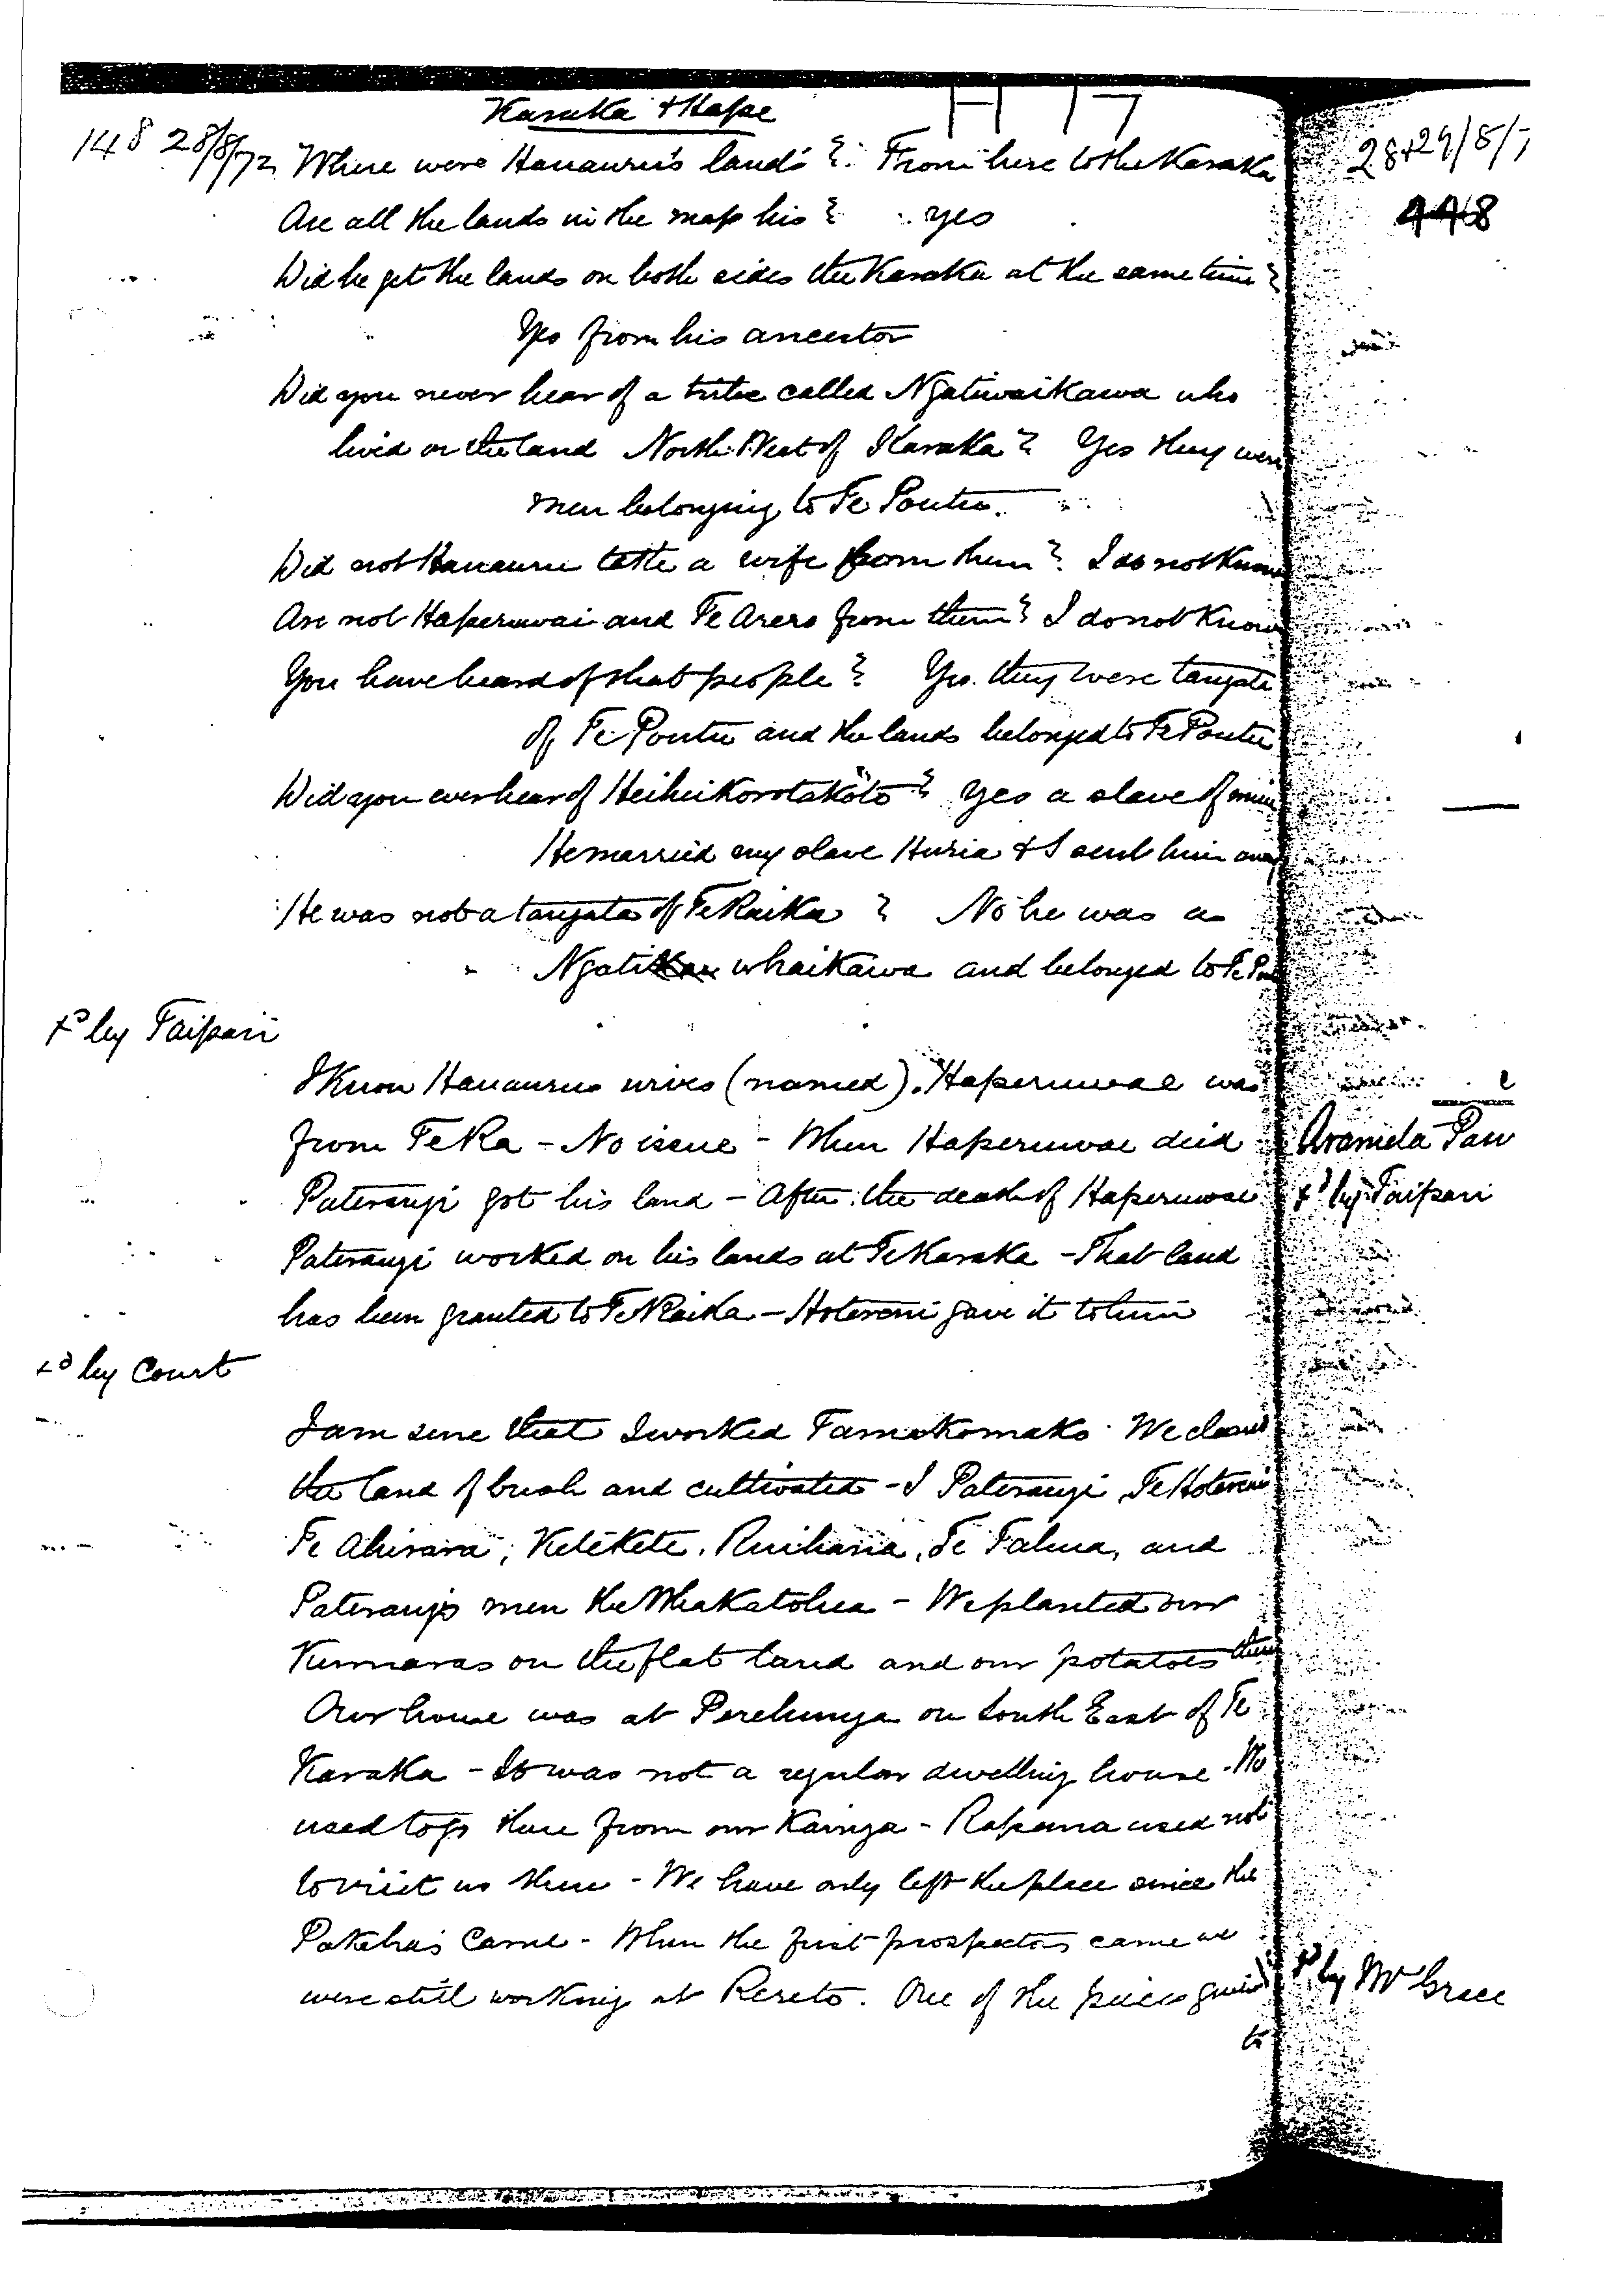 Karaka & Hape
148 28/8/72 Where were Hauauru's lands? From here to the Karaka
Are all the lands in the map his? Yes
Did he get the lands on both sides the Karaka at the same time?
Yes from his ancestor
Did you never hear of a tribe called Ngatiwaikawa who
lived on the land North West of Karaka? Yes they were
men belonging to Te Poutu.
Did not Hauauru take a wife from them? I do not know
Are not Haperuwai and Te Arero from them? I do not know
You have heard of that people? Yes. they were tangata
of Te Poutu and the lands belonged to Te Poutu
Did you ever hear of Heiheikorotakoto? Yes a slave of mine
He married my slave Huria & I sent him away
He was not a tangata of Te Raika? No he was a
Ngati whaikawa and belonged to Te
xd by Taipari
I know Hauauru's wives (named). Haperuwae was
from Te Ra - No issue - When Haperuwae died
Paterangi got his land - After the death of Haperuwae
Paterangi worked on his lands at Te Karaka - That land
has been granted to Te Raika - Hotereni gave it to him
xd by Court
I am sure that I worked Tamakomako. We cleared
the land of bush and cultivated - I Paterangi, Te Hotereni
Te Ahirara, Ketekete, Ruiharia, Te Tahua, and
Paterangi's men the Whakatohea - We planted our
Kumaras on the flat land and our potatoes there
Our house was at Perehunga on South East of Te
Karaka - It was not a regular dwelling house. We
used to go there from our Kainga - Rapana used not
to visit us there - We have only left the place since the
Pakeha's came - When the first prospectors came we
were still working at Rereto. One of the
to
28+29/8/7
448
Aramela Pau
xd by Taipari
xd by Mr Grace